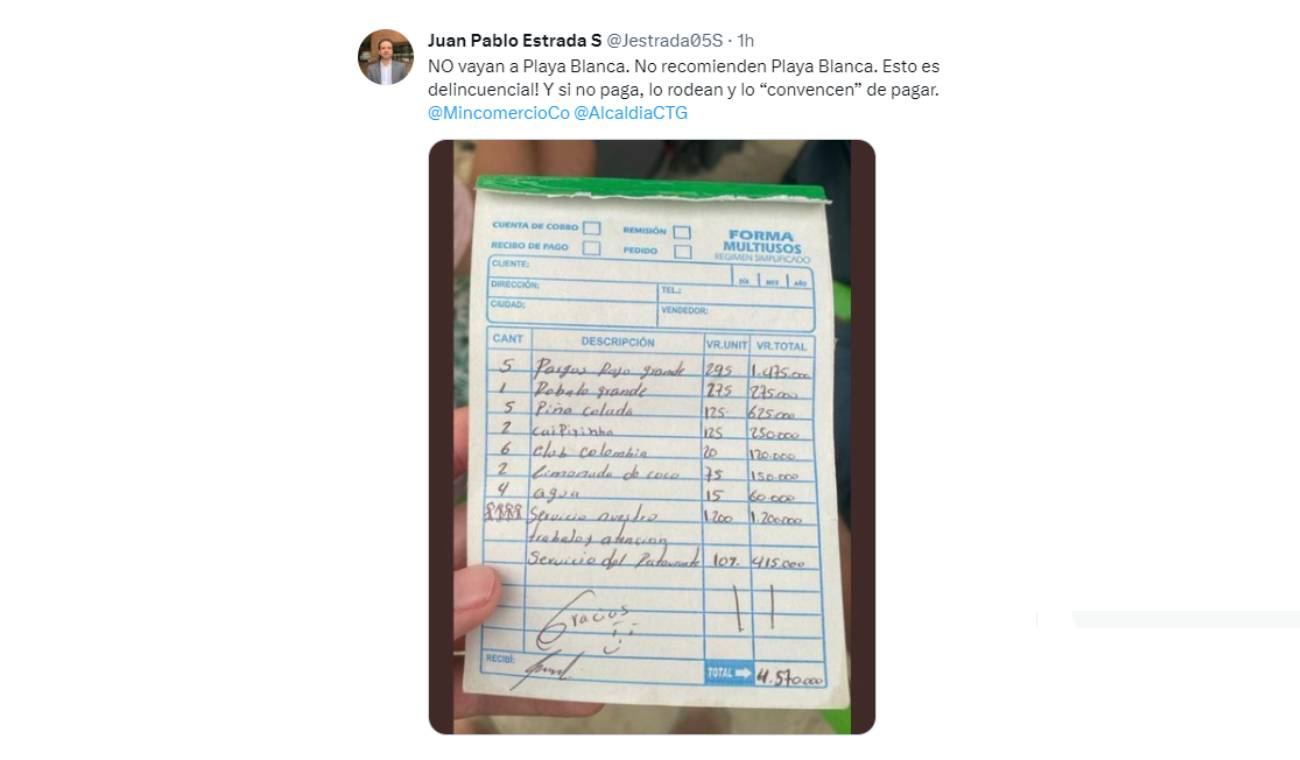 Juan Pablo Estrada S @Jestrada05S · 1h
NO vayan a Playa Blanca. No recomienden Playa Blanca. Esto es
delincuencial! Y si no paga, lo rodean y lo “convencen” de pagar.
@MincomercioCo @AlcaldiaCTG
CUENTA DE COBRO REMISIÓN
RECIBO DE PAGO PEDIDO
FORMA
MULTIUSOS
REGIMEN SIMPLIFICADO
CLIENTE:
DÍA MES AÑO
DIRECCIÓN: TEL.:
CIUDAD: VENDEDOR:
CANT DESCRIPCIÓN VR.UNIT VR.TOTAL
5 Pargos Rojo grande 295 1.475.000
1 Robalo grande 275 275.000
5 Piña colada 125 625.000
2 caiPirinha 125 250.000
6 club colombia 20 120.000
2 limonada de coco 75 150.000
4 agua 15 60.000
Servicio nuestro 1.200 1.200.000
trabajos atencion
Servicio del 10% 415.000
Gracias
RECIBÍ:
TOTAL 4.570.000